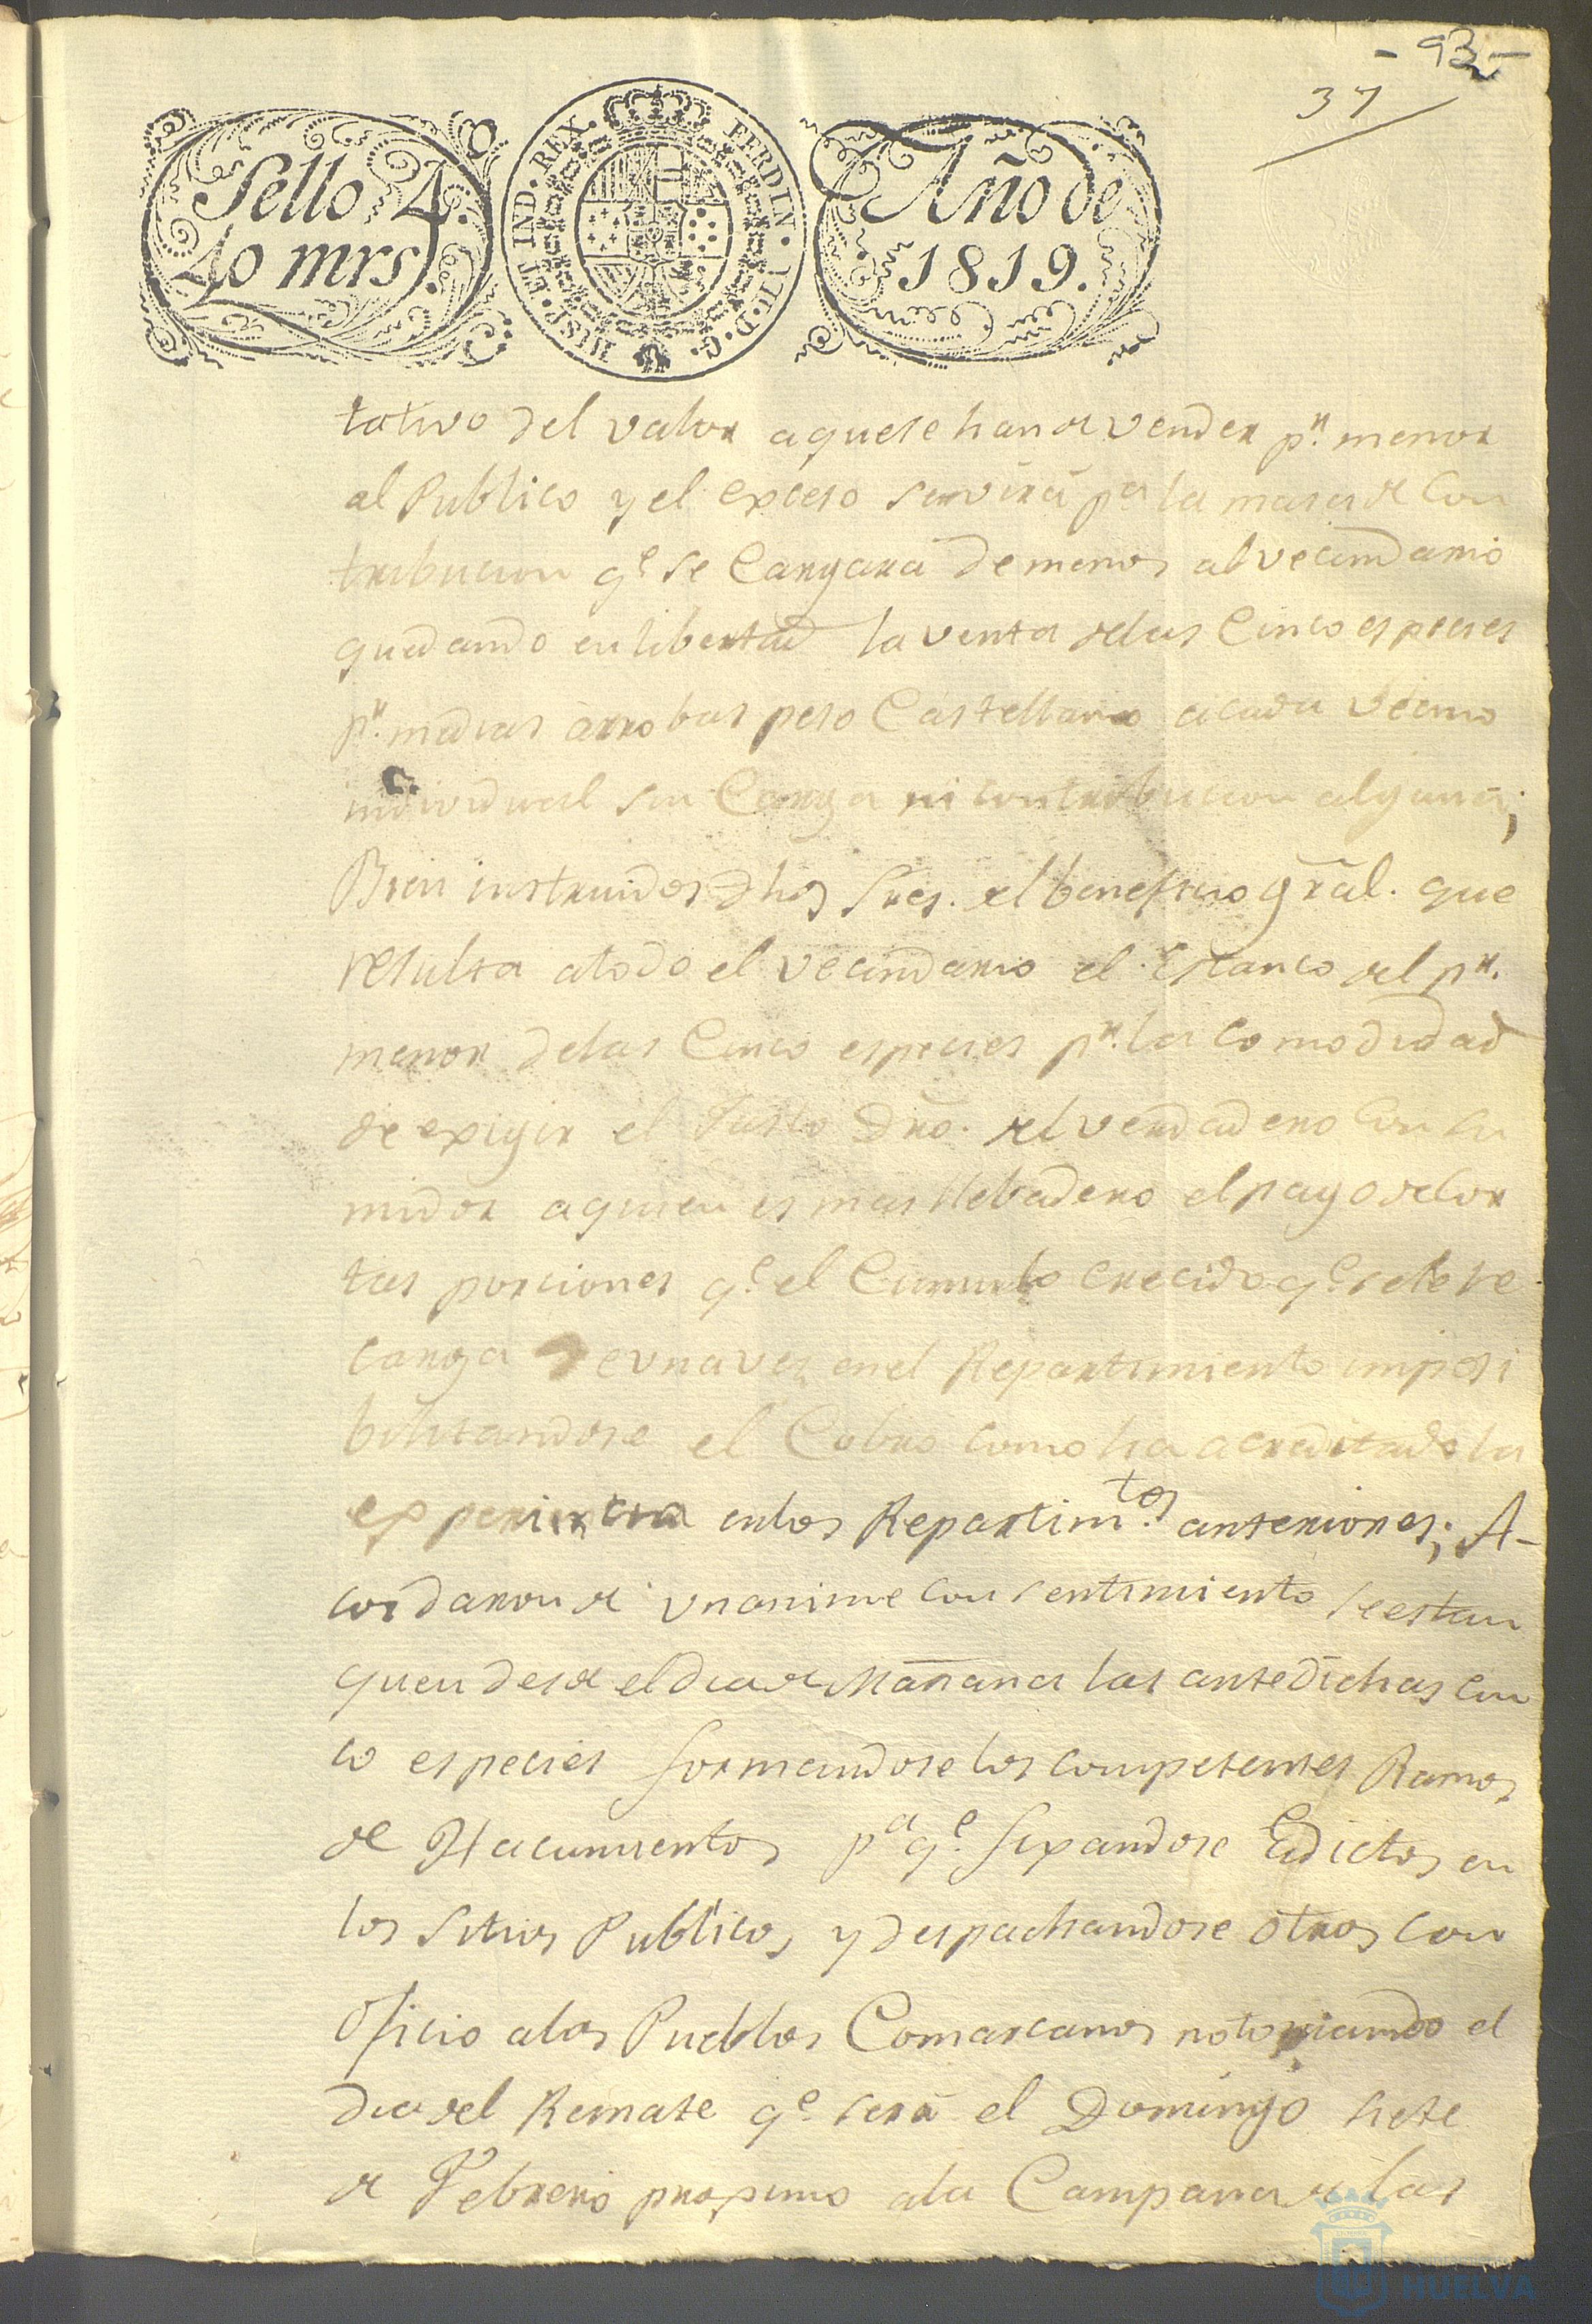 - 93 -
37
Sello 4.
40 mrs.
HISP. ET IND. REX. FERDIN. VII. D. G.
Año de
1819.
tativo del valor aquese han de vender pr. menor
al Publico y el exceso servirá pa. la masa de Con
tribucion qe. se Cargará de menos al vecindario
quedando en libertad la venta de las Cinco especies
pr. medias arrobas peso Castellano a cada vecino
individual sin Carga ni contribucion alguna;
Bien instruidos dhos Sres. del beneficio gral. que
resulta a todo el vecindario el Estanco del pr.
menor de las Cinco especies pr. la comodidad
de exigir el Justo Dro. del verdadero Consu
midor aquien es mas llebadero el pago de cor
tas porciones qe. el Cumulo crecido qe. se le re
carga de una vez en el Repartimiento imposi
bilitandose el Cobro como ha acreditado la
experiencia en los Repartimtos. anteriores; A-
cordaron de unanime consentimiento se estan
quen desde el dia de Mañana las antedichas cin
co especies formandose los competentes Ramos
de Hacimientos pa. qe. fixandose Edictos en
los Sitios Publicos y despachandose otros con
Oficio a los Pueblos Comarcanos notoriando el
dia del Remate qe. será el Domingo siete
de Febrero proximo a la Campana de las
HUELVA